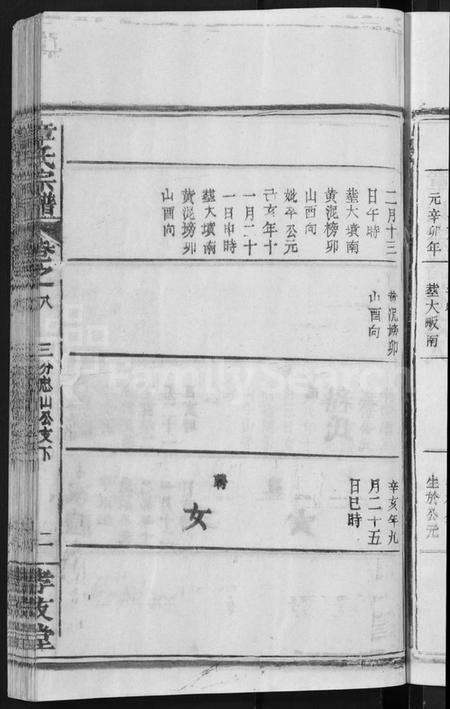 元辛卯年
塟大畈南
生於公元
二月十三
日午時
塟大墳南
黄泥榜卯
山酉向
姚卒公元
己亥年十
一月二十
一日申時
塟大墳南
黄泥塝卯
山酉向
黄泥塝卯
山酉向
辛亥年九
月二十五
日巳時
聘
女
童氏宗譜
卷之八
三分忠山公支下
二
孝友堂
FamilySearch